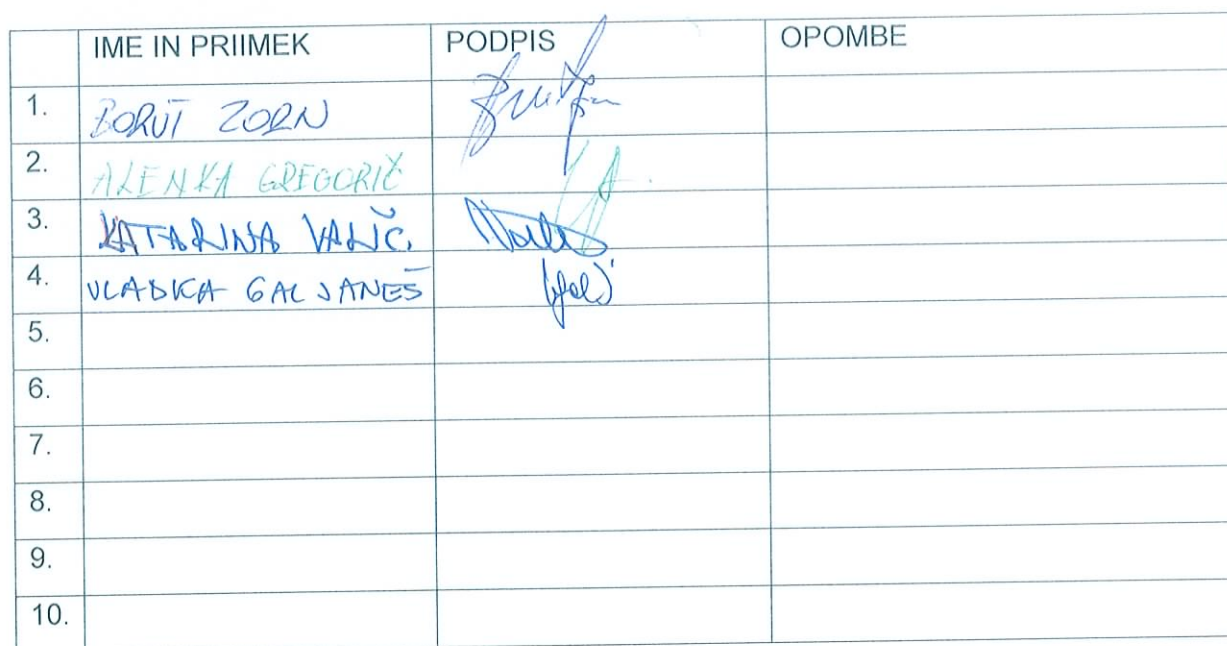 IME IN PRIIMEK PODPIS OPOMBE
1. BORUT ZORN
2. ALENKA GREGORIČ
3. KATARINA VALIČ
4. VLADKA GALJANEŠ
5.
6.
7.
8.
9.
10.